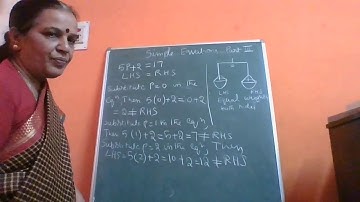 Simple Equation Part II
5P+2=17
LHS = RHS
Substitute P=0 in the
eqn Then 5(0)+2=0+2
=2≠RHS
Substitute P=1 in the eqn,
Then 5(1)+2=5+2=7≠RHS
Substitute P=2 in the eqn, Then
LHS=5(2)+2=10+2=12≠RHS
LHS RHS
Equal weights
both sides